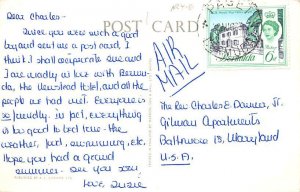 Dear Charles -
Since you were such a good
boy and sent me a post card, I
think I shall reciprocate. Sue and
I are madly in love with Bermu-
da, the Newstead Hotel, and all the
people we had met. Everyone is
so friendly. In fact, everything
is too good to be true - the
weather, food, swimming, etc.
Hope you had a grand
summer. See you soon
Love Susie
POST CARD
AIR
MAIL
Bermuda
6D
The Rev Charles E. Danner, Jr.
Gilman Apartments
Baltimore 18, Maryland
U.S.A.